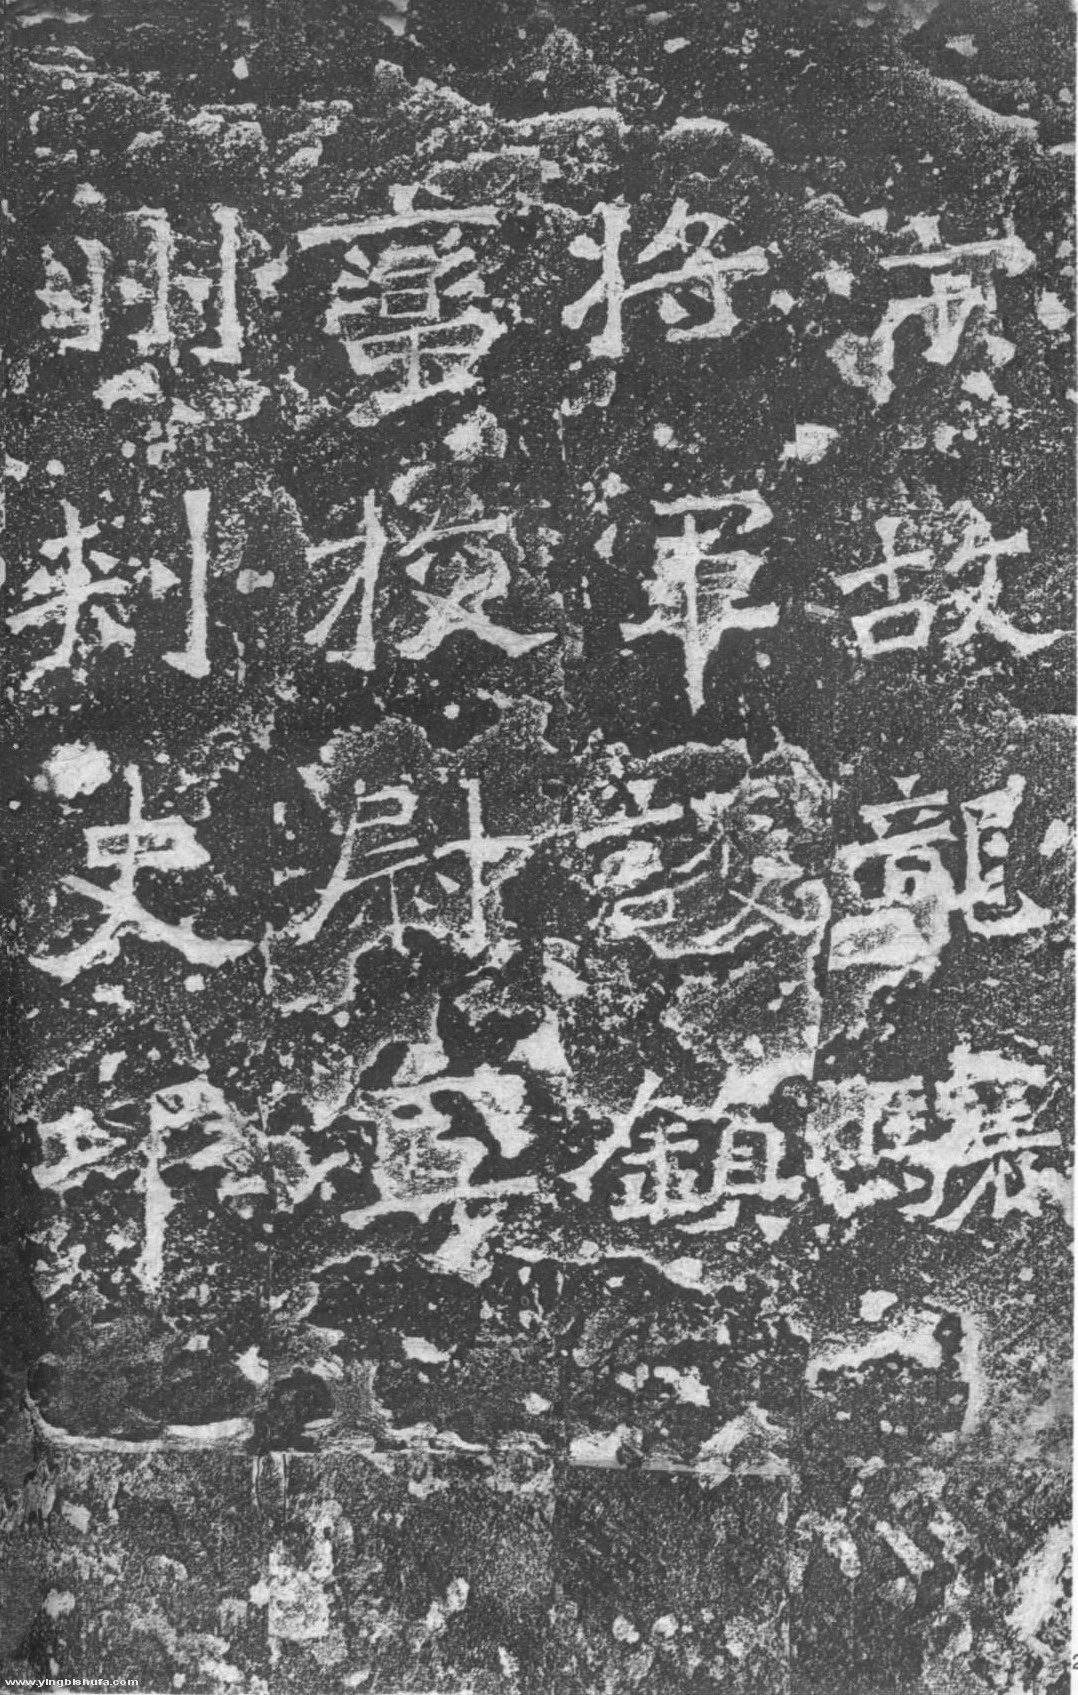 宋故龍驤
將軍護鎮
蠻校尉寧
州刺史邛
www.yingbishufa.com